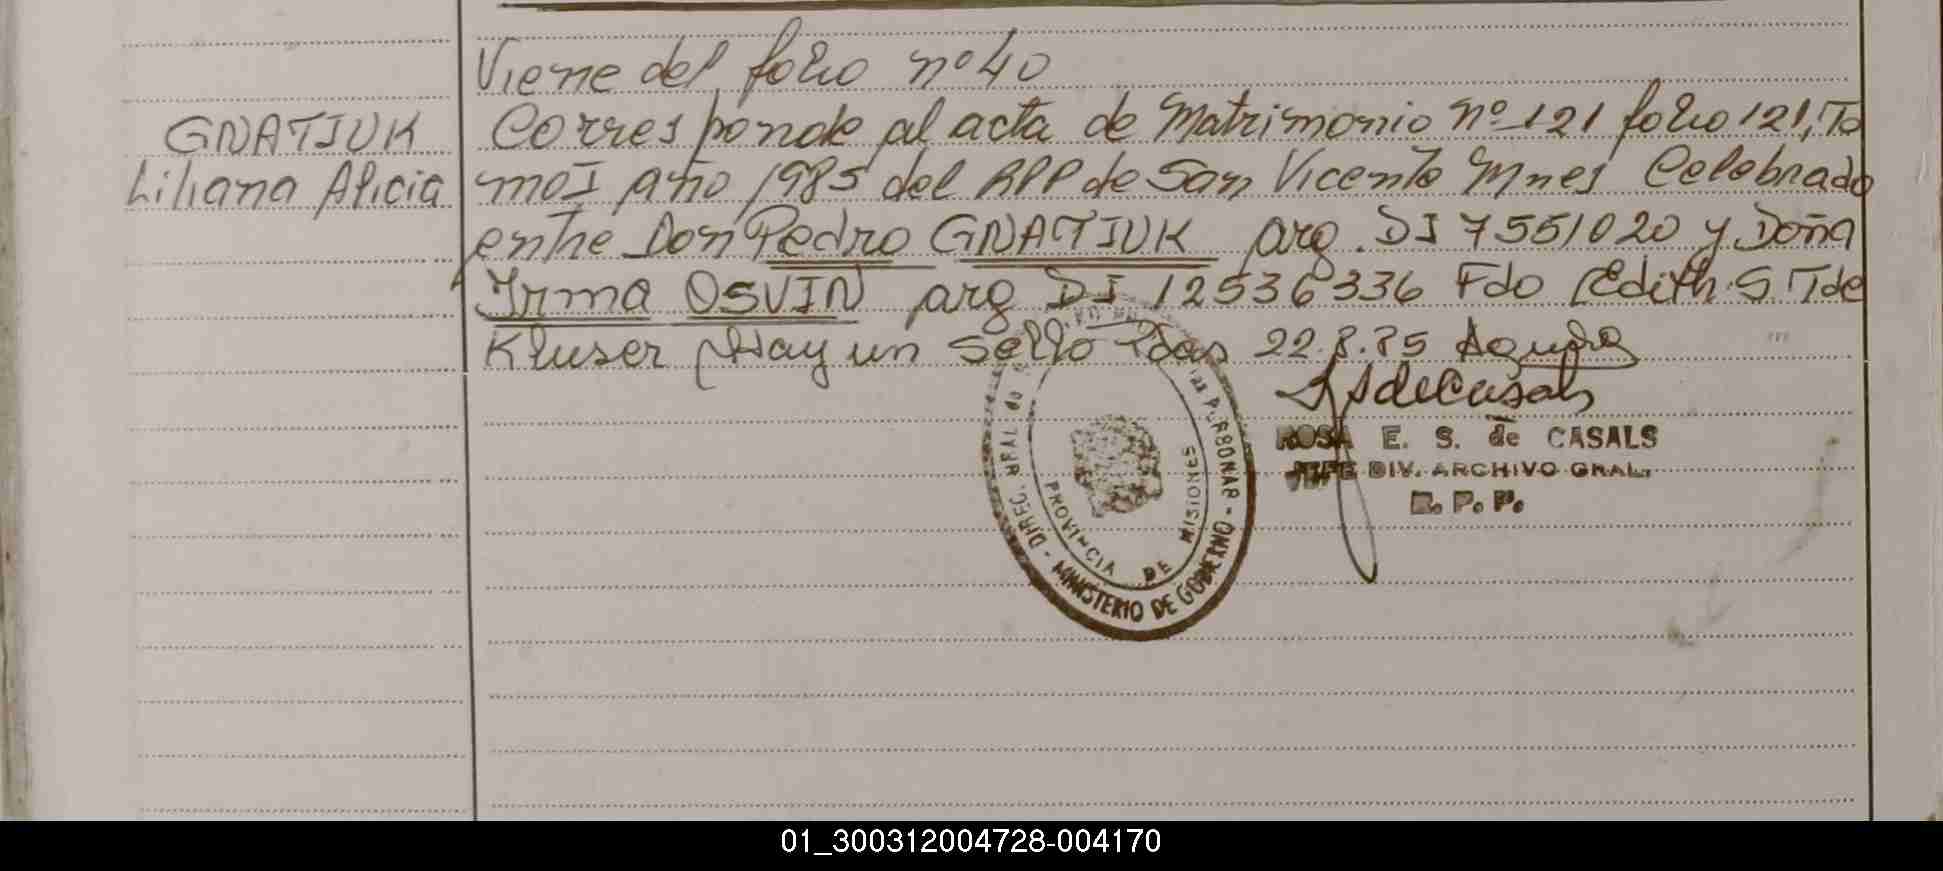 Viene del folio nº 40
GNATIUK
Liliana Alicia
Corresponde al acta de Matrimonio nº 121 folio 121, To
mo I año 1985 del RPP de San Vicente Mnes Celebrado
entre Don Pedro GNATIUK arg. DI 7551020 y Doña
Irma OSVIN arg DI 12536336 Fdo Edith S. T de
Kluser Hay un sello Pdas 22.8.85
ROSA E. S. de CASALS
JEFE DIV. ARCHIVO GRAL.
R. P. P.
PROVINCIA DE MISIONES
MINISTERIO DE GOBIERNO
01_300312004728-004170